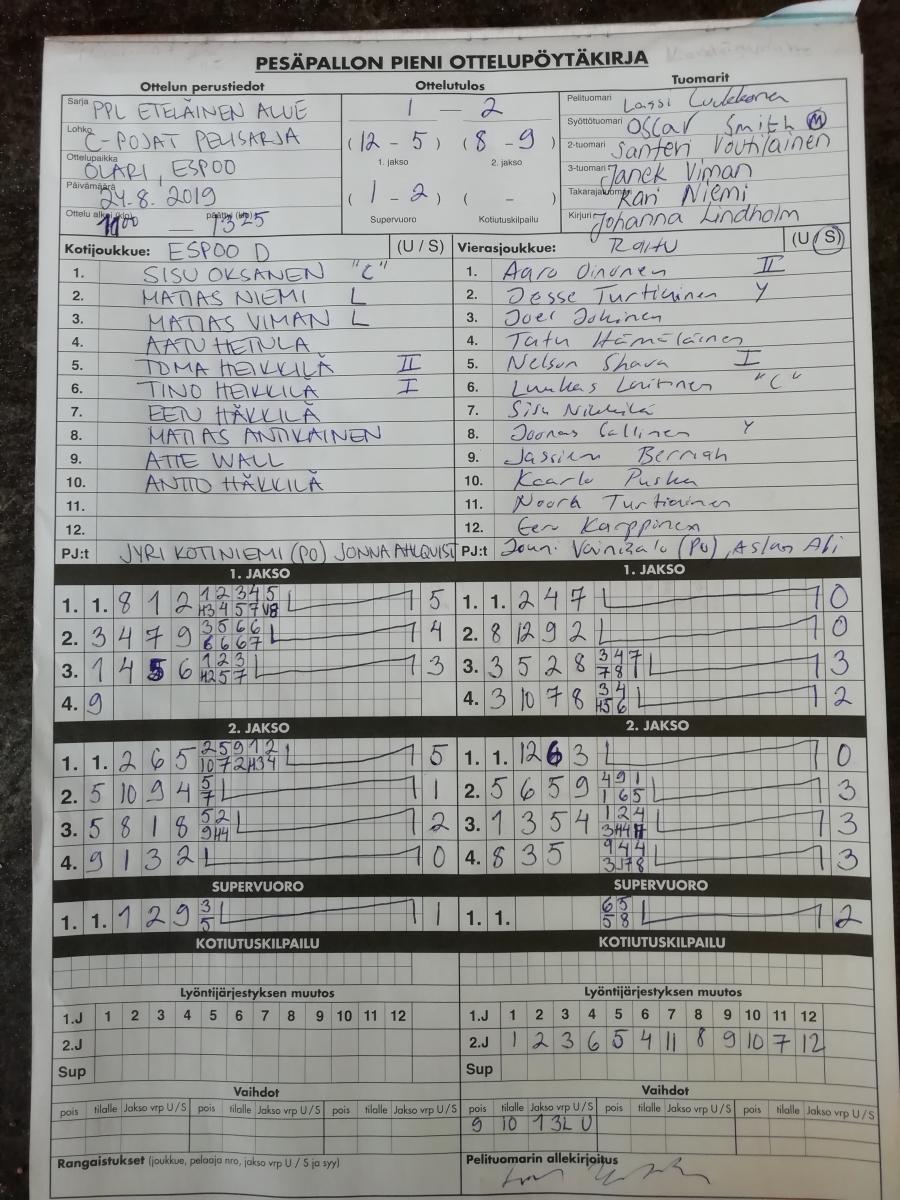 PESÄPALLON PIENI OTTELUPÖYTÄKIRJA
Ottelun perustiedot
Sarja PPL ETELÄINEN ALUE
Lohko C-POJAT PELISARJA
Ottelupaikka OLARI, ESPOO
Päivämäärä 24.8. 2019
— 1325
Ottelutulos
1 — 2
(12 - 5) (8 - 9)
1. jakso 2. jakso
(1 - 2) ( - )
Supervuoro Kotiutuskilpailu
Tuomarit
Pelituomari Lassi
Syöttötuomari Oscar Smith M
2-tuomari Santeri Voutilainen
3-tuomari Janek Viman
Takarajatuomari Kari Niemi
Kirjuri Johanna Lindholm
Kotijoukkue: ESPOO D (U / S)
1. SISU OKSANEN "C"
2. MATIAS NIEMI L
3. MATIAS VIMAN L
4. AATU HEINULA
5. TOMA HEIKKILÄ II
6. TINO HEIKKILÄ I
7. EEN HÄKKILÄ
8. MATIAS ANTIKAINEN
9. ATTE WALL
10. ANTTO HÄKKILÄ
11.
12.
PJ:t JYRI KOTINIEMI (PO) JONNA AHLQVIST
Vierasjoukkue: (U / S)
1. Aaro Oinonen II
2. Jesse Turtiainen Y
3. Joel Jokinen
4. Tatu Hämäläinen
5. Nelson Shava I
6. Luukas Laitinen "C"
7. Sisu
8. Joonas Sallinen Y
9. Jassien Berriah
10. Kaarlo Puska
11. Noora Turtiainen
12. Eero Karppinen
PJ:t Jouni Vainisalo (PO), Aslan Ali
1. JAKSO
1. 1. 8 1 2 1 2 3 4 5 5
2. 3 4 7 9 3 5 6 6 6 6 6 7 4
3. 1 4 5 6 1 2 3 H2 5 7 3
4. 9
1. JAKSO
1. 1. 2 4 7 0
2. 8 12 9 2 0
3. 3 5 2 8 3 4 7 7 8 3
4. 3 10 7 8 3 4 H5 6 2
2. JAKSO
1. 1. 2 6 5 2 5 9 1 2 10 7 2 H3 4 5
2. 5 10 9 4 5 7 1
3. 5 8 1 8 5 2 9 H4 2
4. 9 1 3 2 0
2. JAKSO
1. 1. 12 6 3 0
2. 5 6 5 9 4 9 1 1 6 5 3
3. 1 3 5 4 1 2 4 3
4. 8 3 5 9 4 4 3
SUPERVUORO
1. 1. 1 2 9 3 5 1
SUPERVUORO
1. 1. 6 5 5 8 2
KOTIUTUSKILPAILU
KOTIUTUSKILPAILU
Lyöntijärjestyksen muutos
1.J 1 2 3 4 5 6 7 8 9 10 11 12
2.J
Sup
Lyöntijärjestyksen muutos
1.J 1 2 3 4 5 6 7 8 9 10 11 12
2.J 1 2 3 6 5 4 11 8 9 10 7 12
Sup
Vaihdot
pois tilalle Jakso vrp U / S pois tilalle Jakso vrp U / S pois tilalle Jakso vrp U / S
Vaihdot
pois tilalle Jakso vrp U / S pois tilalle Jakso vrp U / S pois tilalle Jakso vrp U / S
9 10 1 3L U
Rangaistukset (joukkue, pelaaja nro, jakso vrp U / S ja syy)
Pelituomarin allekirjoitus